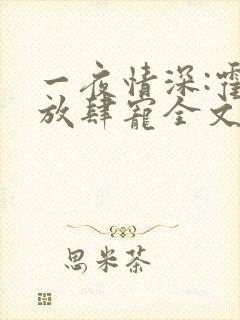 一夜情深:霍
放肆宠全文
思米茶